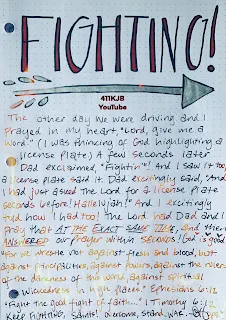 FIGHTING!
411KJB
YouTube
The other day we were driving and I
prayed in my heart, "Lord, give me a
word." (I was thinking of God highlighting a
license plate) A few seconds later
Dad exclaimed, "Fightin'"! And I saw it too,
a license plate said it. Dad excitingly said, "And
I had just asked the Lord for a license plate
seconds before! Hallelujah!" And I excitingly
told how I had too! The Lord had Dad and I
pray that AT THE EXACT SAME TIME, and then
ANSWERED our prayer within SECONDS! God is good
"For we wrestle not against flesh and blood, but
against principalities, against powers, against the rulers
of the darkness of this world, against spiritual
wickedness in high places." Ephesians 6:12
"Fight the good fight of faith..." 1 Timothy 6:12
Keep FIGHTING, Saints! Overcome, stand, WAR.